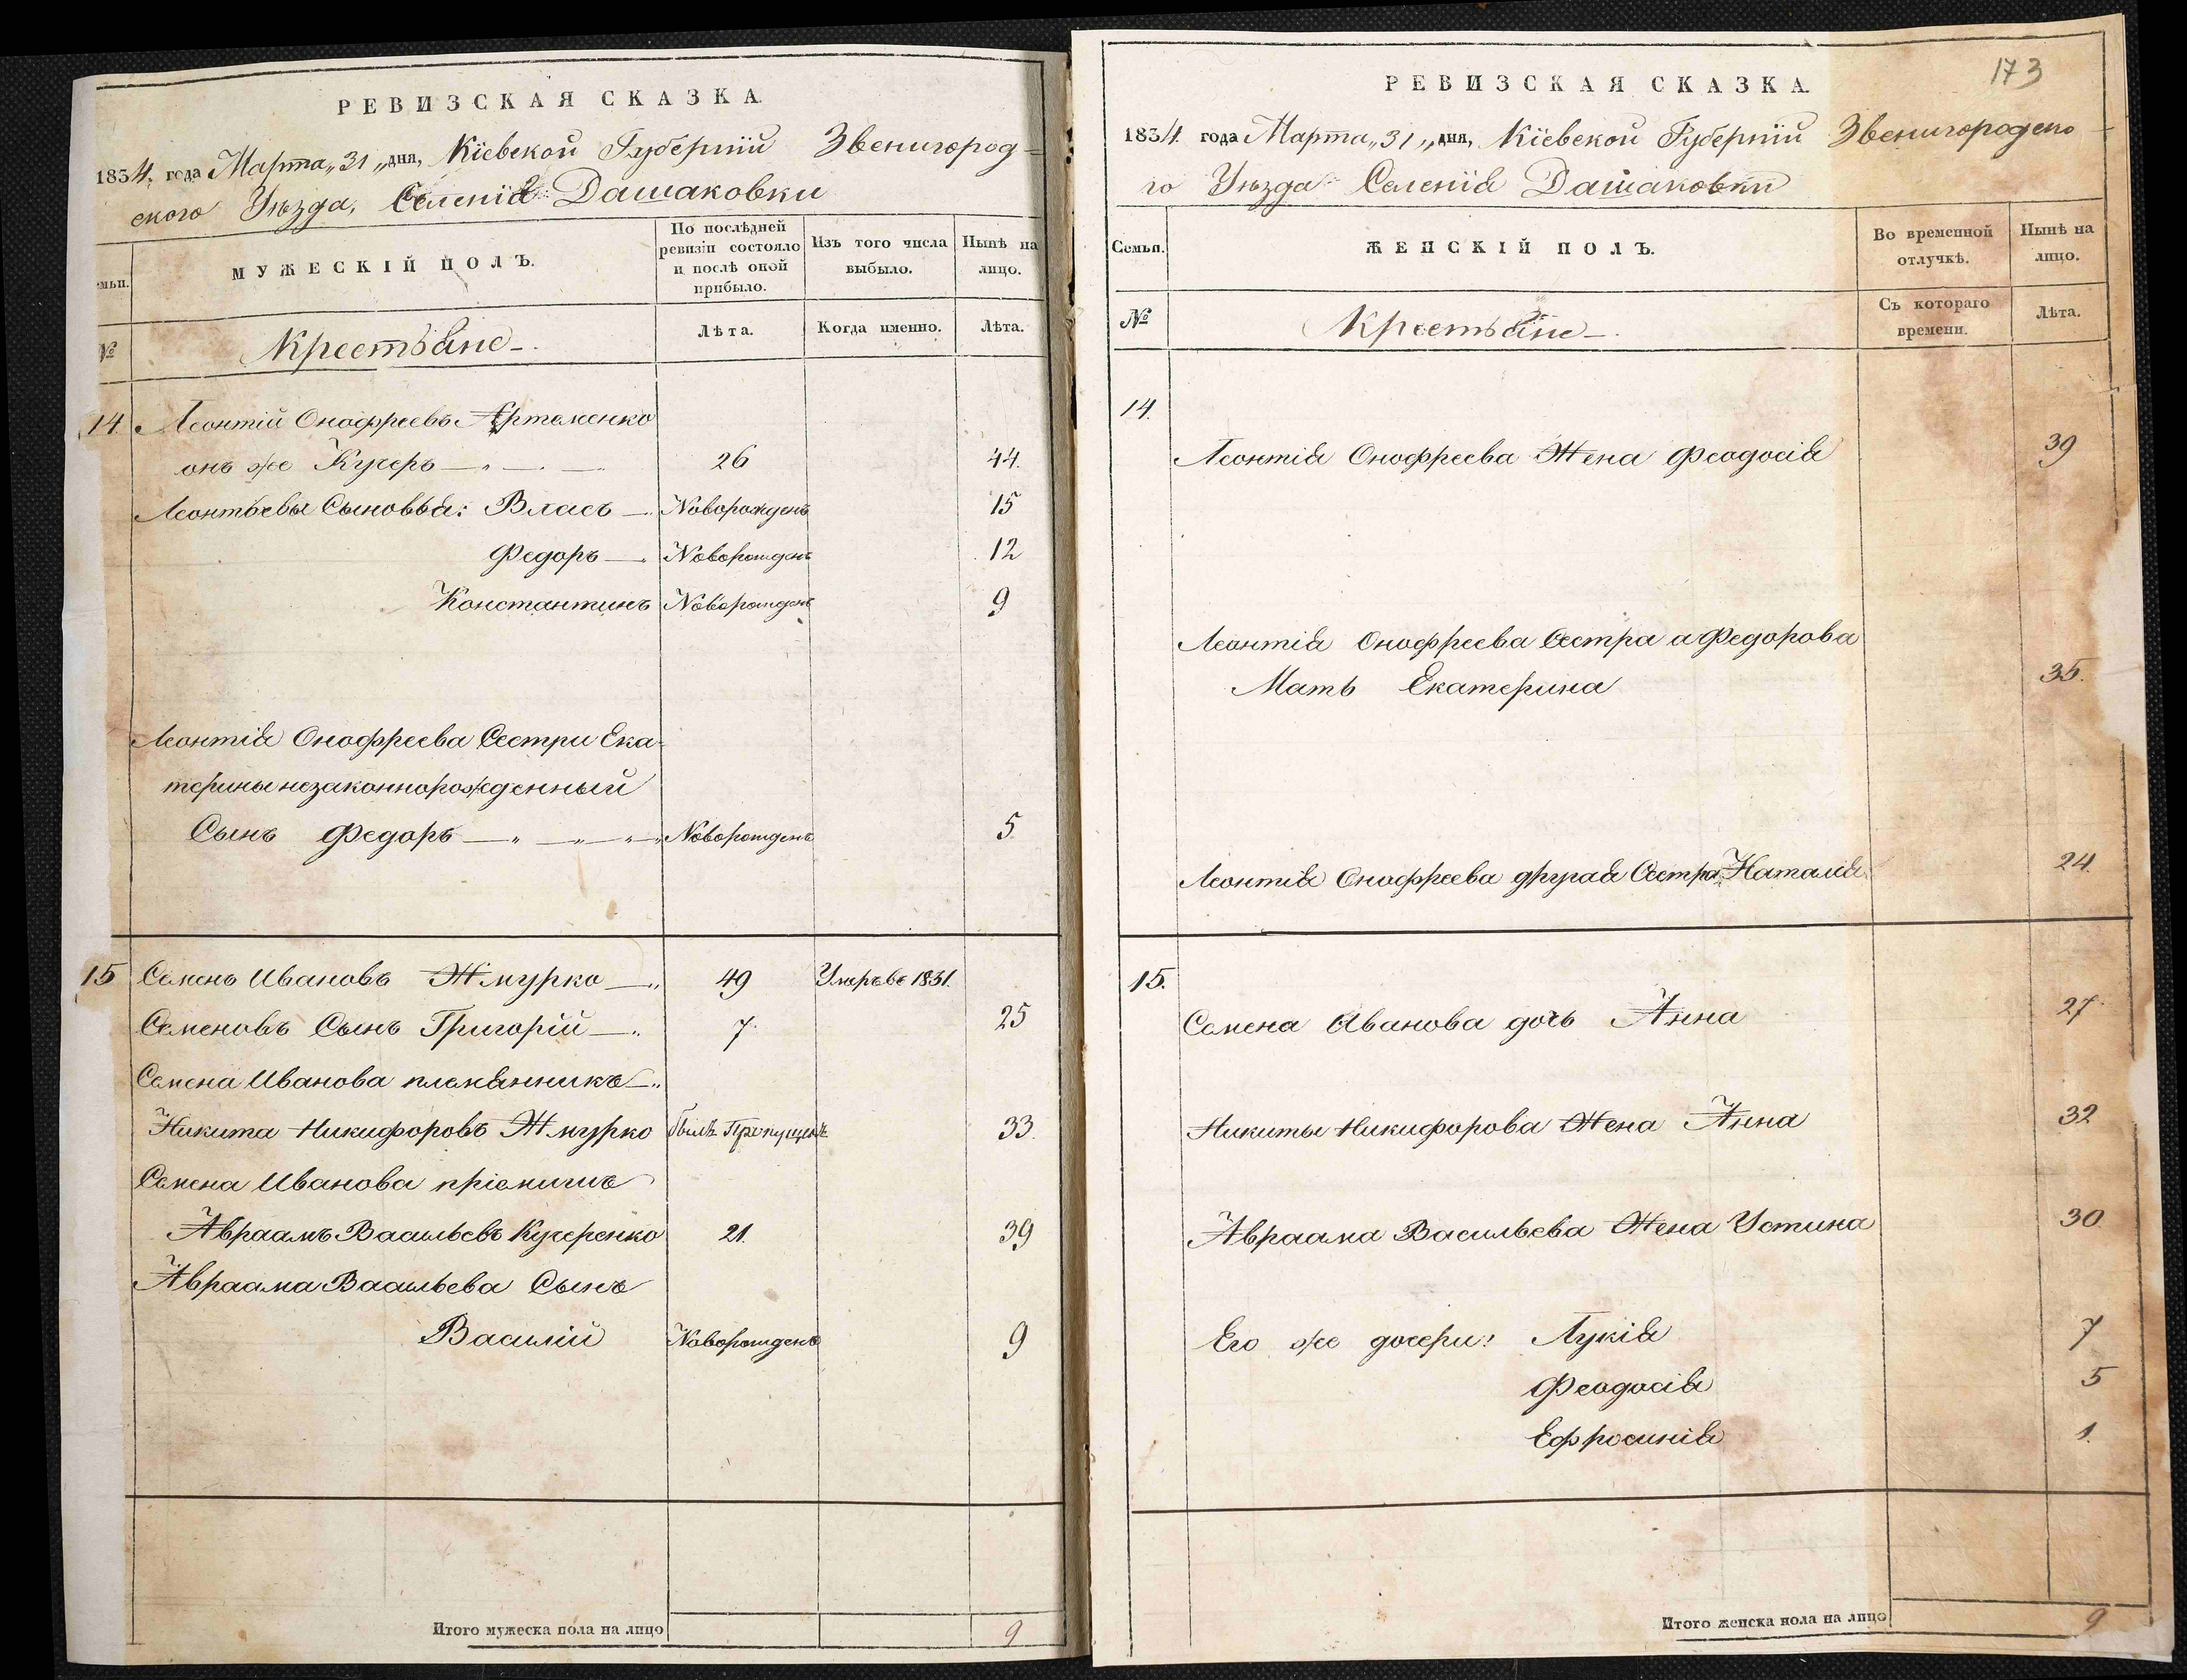 РЕВИЗСКАЯ СКАЗКА.
1834. года Марта „31„ дня, Кіевской Губерніи Звенигород-
ского Уѣзда, Селенія Дашаковки
емьи.
МУЖЕСКІЙ ПОЛЪ.
По послѣдней ревизіи состояло и послѣ оной прибыло.
Изъ того числа выбыло.
Нынѣ на лицо.
№
Крестьяне
Лѣта.
Когда именно.
Лѣта.
14. Леонтій Онофреевъ Артеменко
онъ же Кучеръ 26 44.
Леонтьевы Сыновья: Власъ Новорожденъ 15
Федоръ Новорожденъ 12
Константинъ Новорожденъ 9
Леонтія Онофреева Сестри Ека-
терины незаконнорожденный
Сынъ Федоръ Новорожденъ 5.
15 Семенъ Ивановъ Жмурко 49 Умеръ въ 1831.
Семеновъ Сынъ Григорій 7. 25
Семена Иванова племянникъ
Никита Никифоровъ Жмурко былъ Пропущенъ 33.
Семена Иванова пріемишъ
Авраамъ Васильевъ Кучеренко 21. 39
Авраама Васильева Сынъ
Василій Новорожденъ 9
Итого мужеска пола на лицо 9
173
РЕВИЗСКАЯ СКАЗКА.
1834. года Марта „31„ дня, Кіевской Губерніи Звенигородско-
го Уѣзда Селенія Дашаковки
Семьи.
ЖЕНСКІЙ ПОЛЪ.
Во временной отлучкѣ.
Нынѣ на лицо.
№
Крестьяне
Съ котораго времени.
Лѣта.
14.
Леонтія Онофреева Жена Феодосія 39
Леонтія Онофреева Сестра а Федорова
Мать Екатерина 35.
Леонтія Онофреева другая Сестра Наталія 24.
15.
Семена Иванова дочь Анна 27.
Никиты Никифорова Жена Анна 32
Авраама Васильева Жена Устина 30
Его же дочери: Лукія 7
Феодосія 5
Ефросинія 1.
Итого женска пола на лицо 9